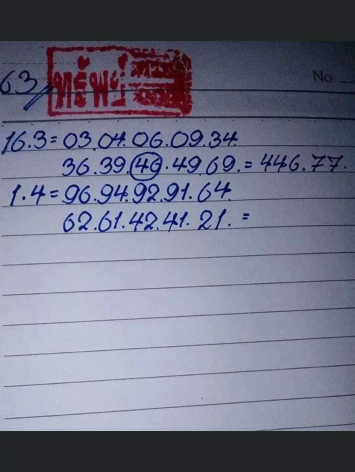 63
ทรัพย์
No.
16.3=03.04.06.09.34.
36.39.46.49.69.=446.77.
1.4=96.94.92.91.64.
62.61.42.41.21.=